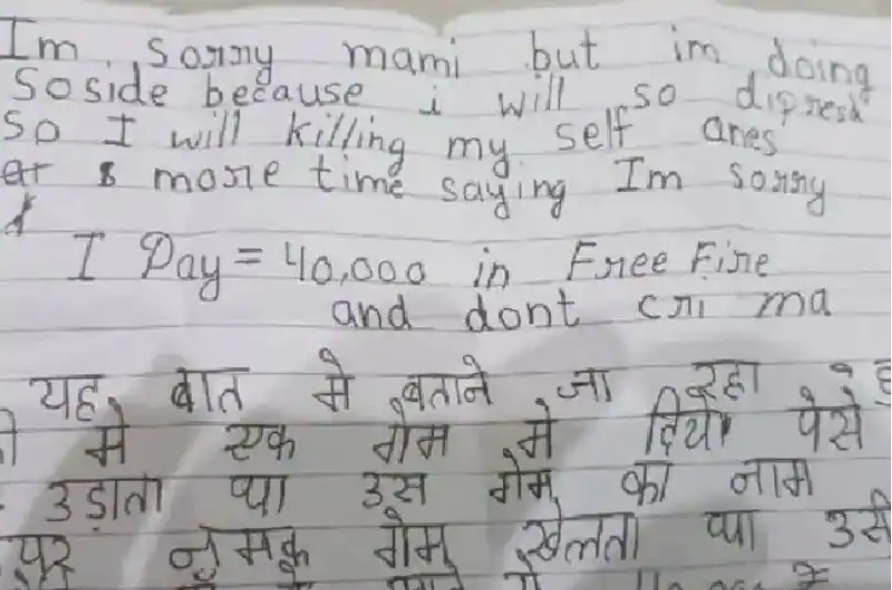 Im sorry mami but im doing
Soside because i will so dipresd
So I will killing my self anes
er more time saying Im sorry
I Day = 40,000 in Free Fire
and dont cri ma
यह बात मे बताने जा रहा
मे एक गेम मे दिये पेसे
उड़ाता था उस गेम का नाम
गेम खेलता था उसी